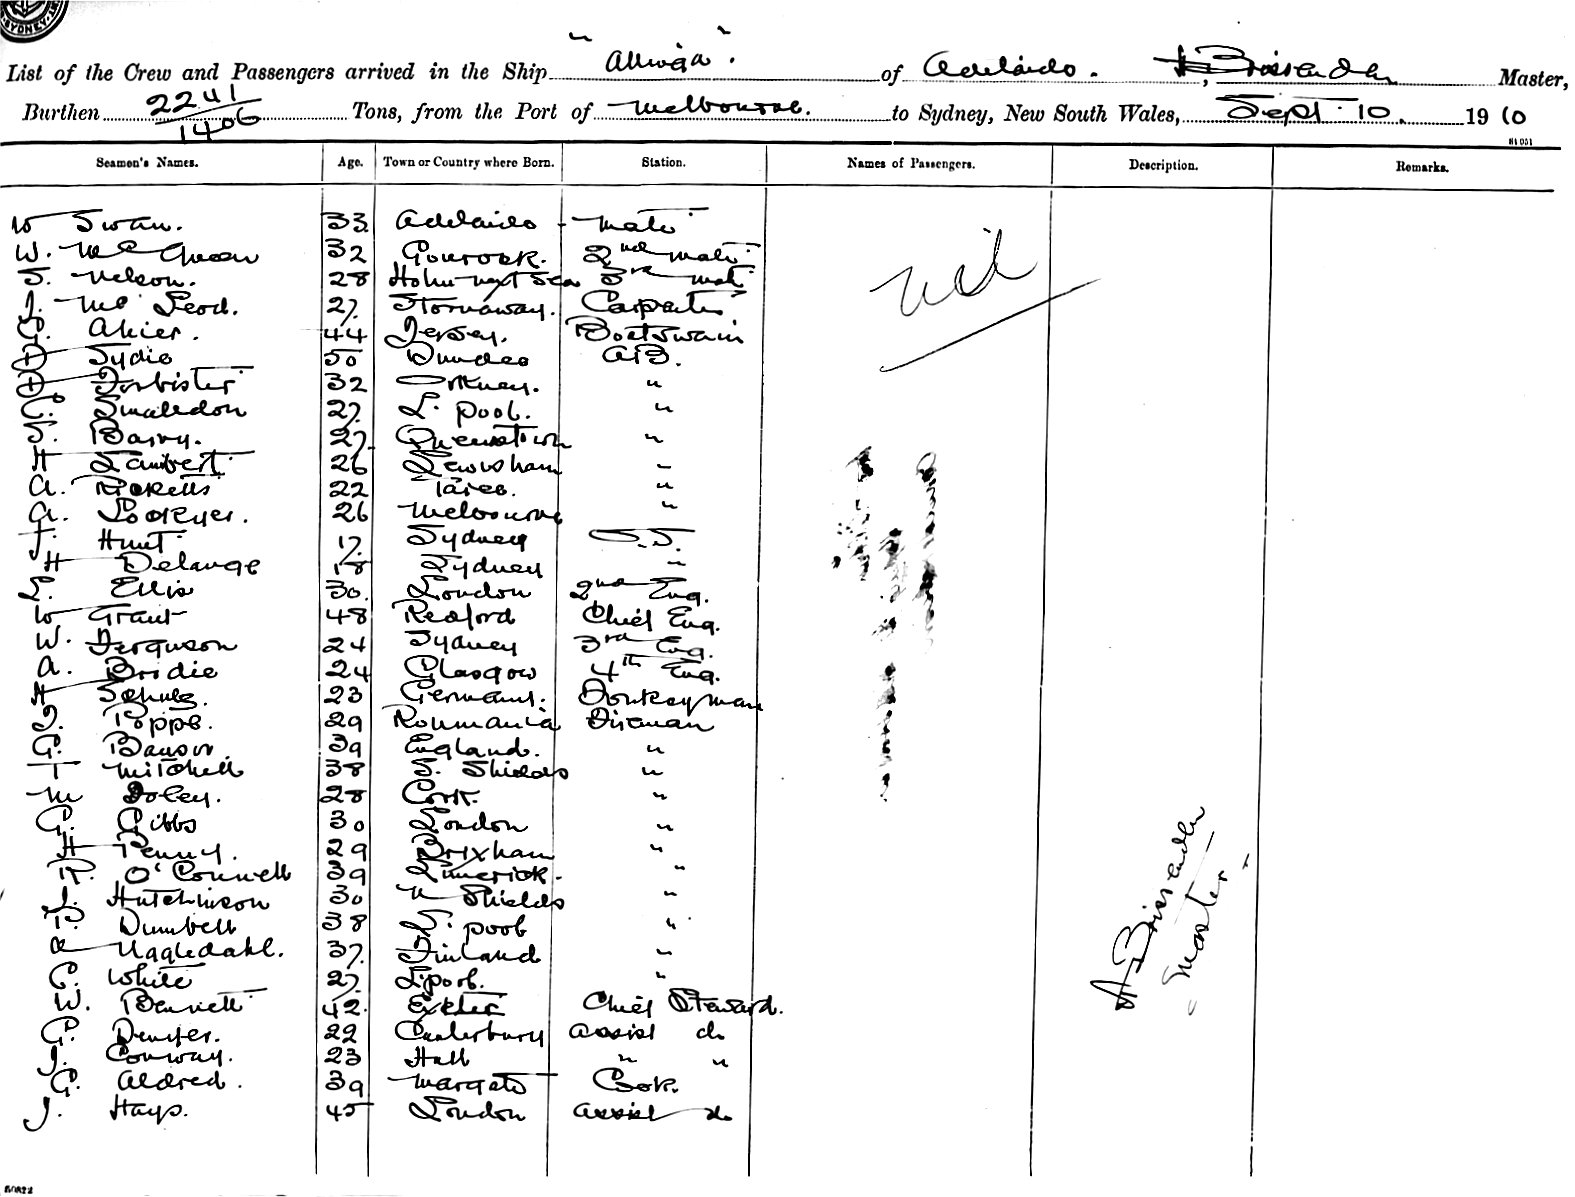 SYDNEY
List of the Crew and Passengers arrived in the Ship "Allinga". of Adelaide. A Brissenden Master,
Burthen 2241/1406 Tons, from the Port of Melbourne. to Sydney, New South Wales, Sept 10. 1910
Seamen's Names. Age. Town or Country where Born. Station. Names of Passengers. Description. Remarks.
W Swan. 33 Adelaide Mate
W. McQueen 32 Gourock. 2nd Mate
J. Nelson. 28 Holm next Sea 3rd Mate
J. McLeod. 27. Stornaway. Carpenter
G. Ahier. 44 Jersey. Boatswain
D Sydie 50 Dundee A.B.
D Forbister 32 Orkney. "
C. Smaledon 27. L. pool. "
J. Barry. 27. Queenstown "
H Lambert 26 Lewisham "
A. Ricketts 22 Taree. "
A. Lockyer. 26 Melbourne "
J. Hunt 17. Sydney O.S.
H Delange 18 Sydney "
L. Ellis 30. London 2nd Eng.
W Grant 48 Redford Chief Eng.
W. Ferguson 24 Sydney 3rd Eng.
A. Brodie 24 Glasgow 4th Eng.
H Schulz. 23 Germany. Donkeyman
J. Poppe. 29 Roumania Fireman
G. 39 England. "
T Mitchell 38 S. Shields "
M Foley. 28 Cork. "
G. Gibbs 30 London "
H Penny. 29 Brixham "
R. O'Connell 39 Limerick. "
J. Hutchinson 30 N Shields "
P. Dumbell 38 L. pool "
A 37. Finland "
C. White 27. L. pool. "
W. Bennett 42. Exeter Chief Steward.
G. 22 Canterbury Assist do
J. Conway. 23 Hull " "
G. Aldred. 39 Margate Cook.
J. Hays. 45 London Assist do
Nil
A Brissenden
Master